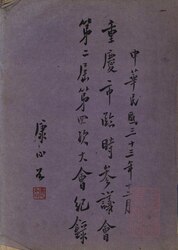 中華民國三十三年十二月
重慶市臨時參議會
第二屆第四次大會紀錄
康心如